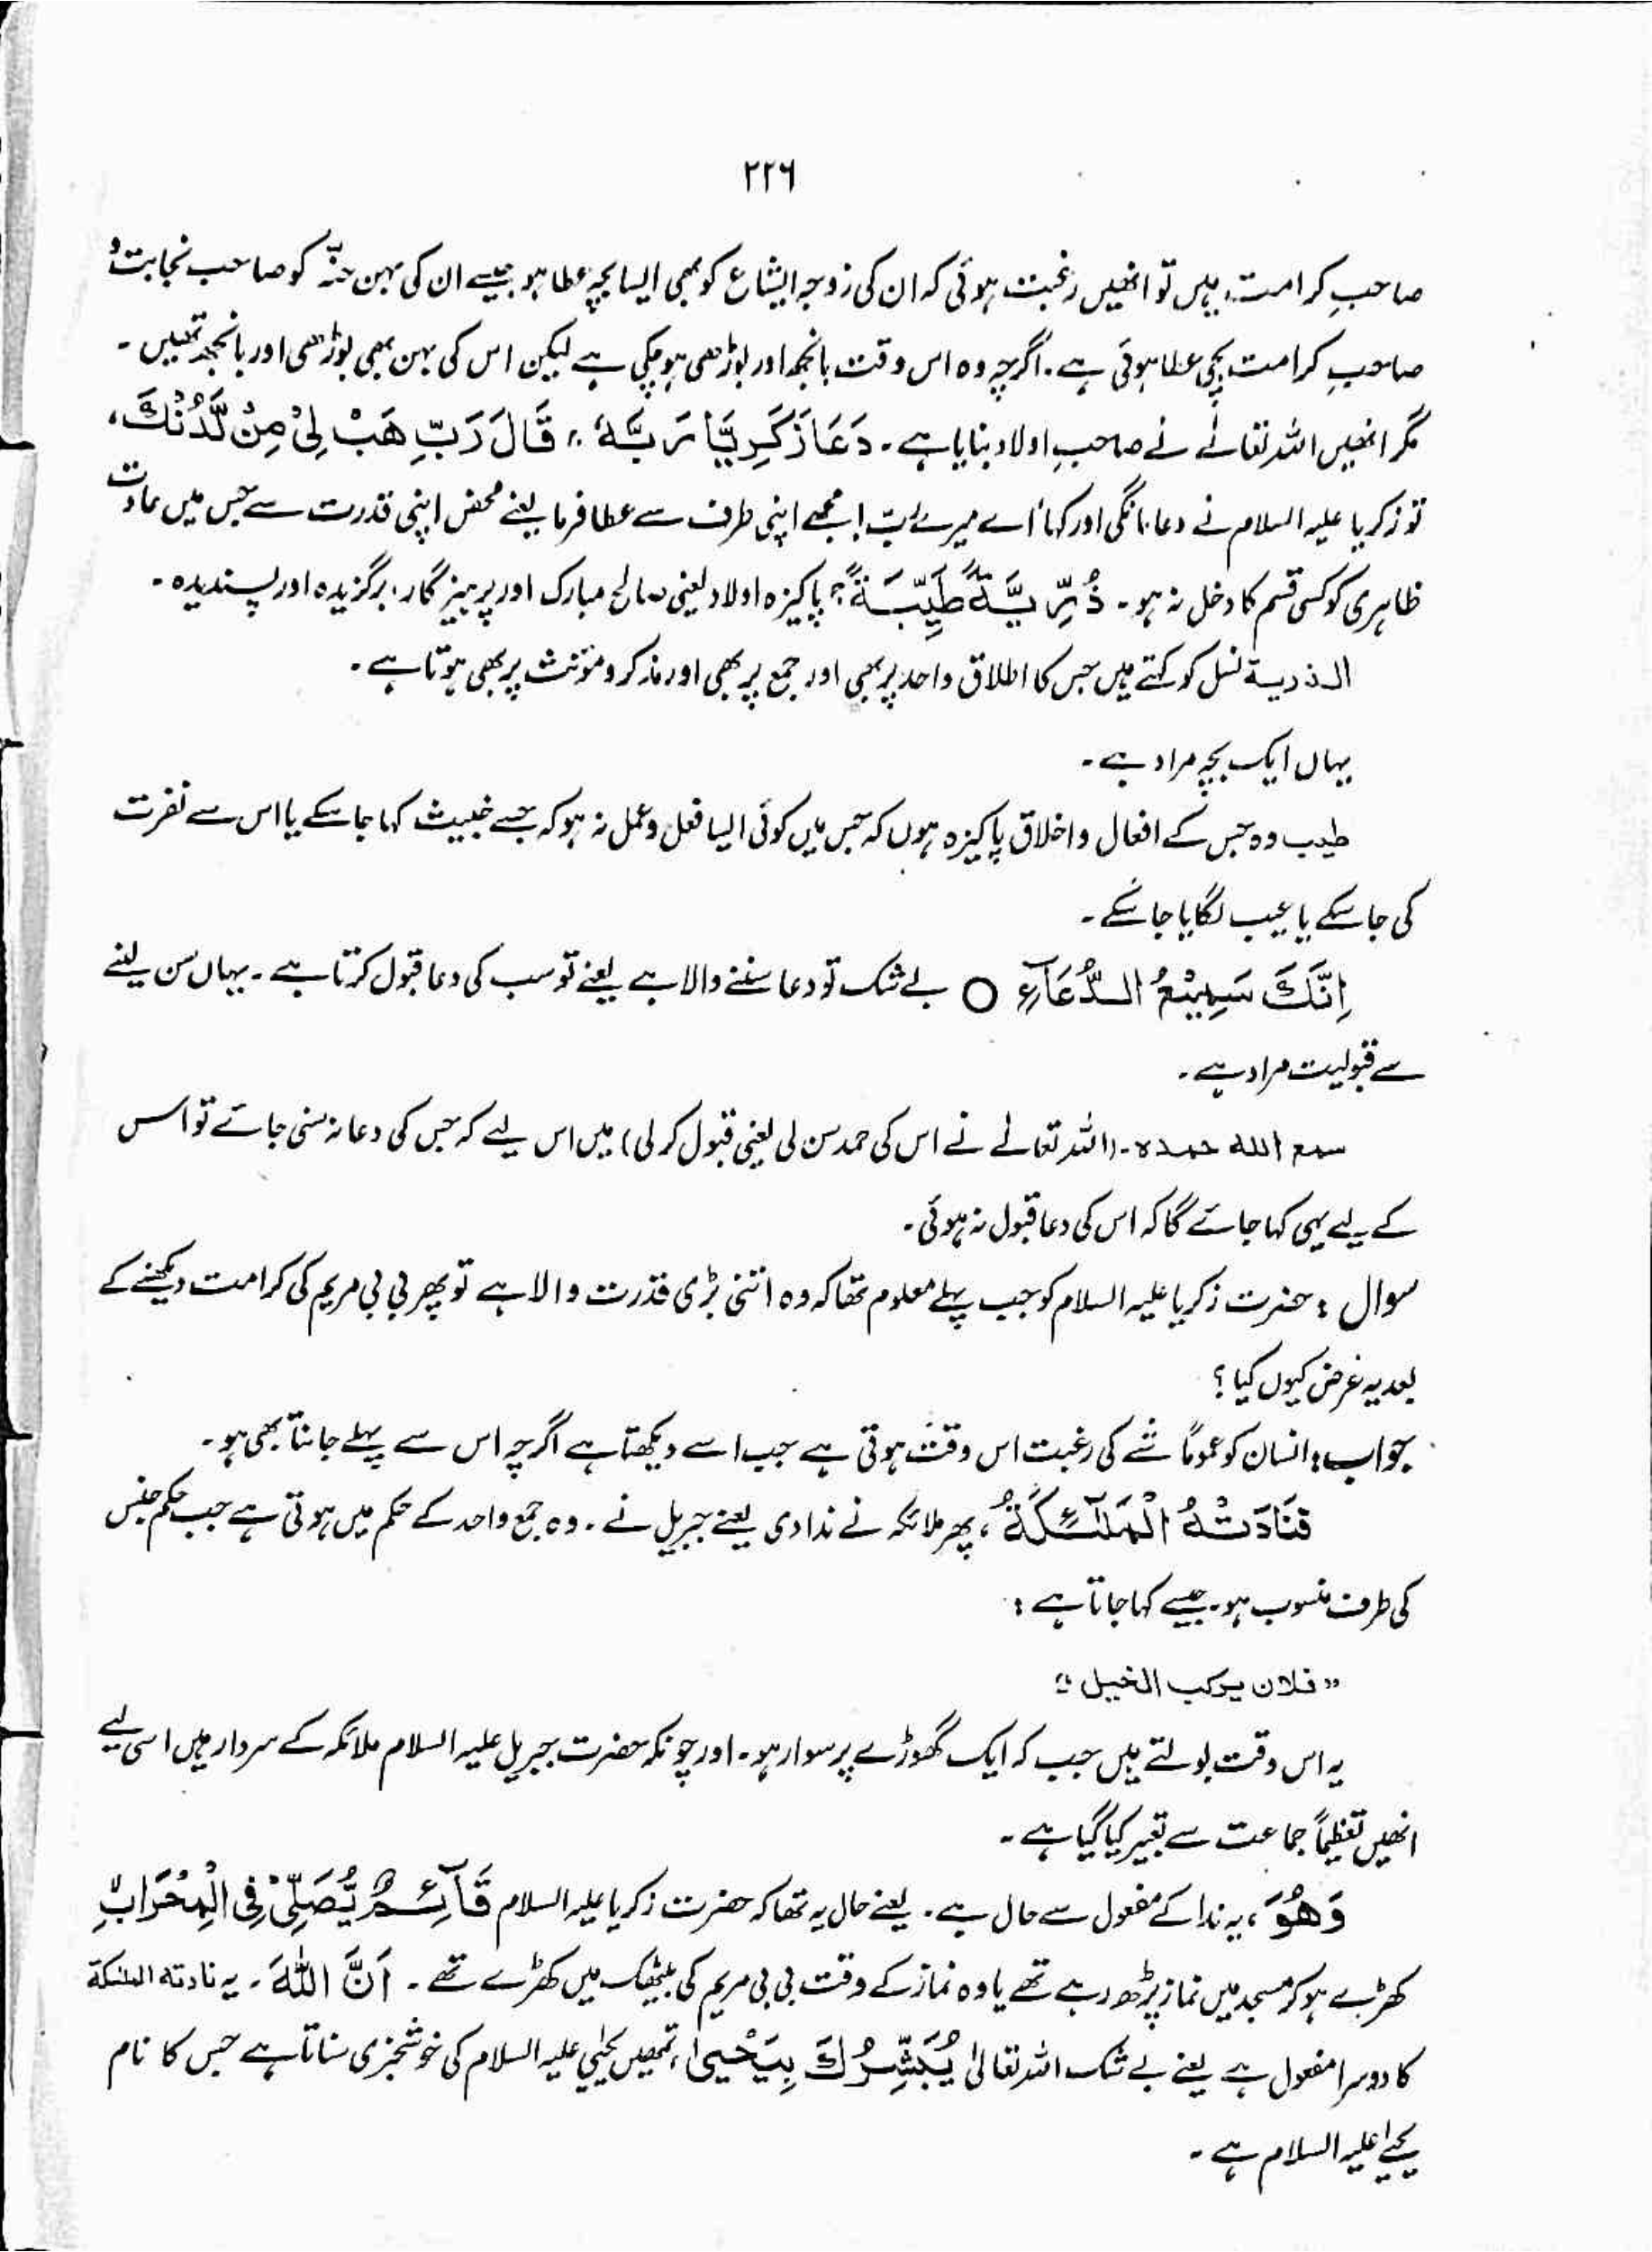 ۲۲۶
صاحبِ کرامت ہیں تو انھیں رغبت ہوئی کہ ان کی زوجہ ایشاع کو بھی ایسا بچہ عطا ہو جیسے ان کی بہن حنّہ کو صاحب نجابت و
صاحبِ کرامت بچی عطا ہوئی ہے۔ اگرچہ وہ اس وقت بانجھ اور بوڑھی ہو چکی ہے لیکن اس کی بہن بھی بوڑھی اور بانجھ تھیں۔
مگر انھیں اللہ تعالےٰ نے صاحبِ اولاد بنایا ہے۔ دَعَا زَكَرِيَّا رَبَّهٗ ، قَالَ رَبِّ هَبْ لِىْ مِنْ لَّدُنْكَ،
تو زکریا علیہ السلام نے دعا مانگی اور کہا اے میرے رب! مجھے اپنی طرف سے عطا فرما یعنے محض اپنی قدرت سے جس میں عادت
ظاہری کو کسی قسم کا دخل نہ ہو۔ ذُرِّيَّةً طَيِّبَةً ؛ پاکیزہ اولاد یعنی صالح مبارک اور پرہیزگار، برگزیدہ اور پسندیدہ۔
الذریۃ نسل کو کہتے ہیں جس کا اطلاق واحد پر بھی اور جمع پر بھی اور مذکر و مؤنث پر بھی ہوتا ہے۔
یہاں ایک بچہ مراد ہے۔
طیب وہ جس کے افعال و اخلاق پاکیزہ ہوں کہ جس میں کوئی ایسا فعل و عمل نہ ہو کہ جسے خبیث کہا جا سکے یا اس سے نفرت
کی جا سکے یا عیب لگایا جا سکے۔
اِنَّكَ سَمِيْعُ الدُّعَآءِ ○ بے شک تو دعا سننے والا ہے یعنے تو سب کی دعا قبول کرتا ہے۔ یہاں سن لینے
سے قبولیت مراد ہے۔
سمع اللہ حمدہ۔ (اللہ تعالےٰ نے اس کی حمد سن لی یعنی قبول کر لی) میں اس لیے کہ جس کی دعا نہ سنی جائے تو اس
کے لیے یہی کہا جائے گا کہ اس کی دعا قبول نہ ہوئی۔
سوال : حضرت زکریا علیہ السلام کو جب پہلے معلوم تھا کہ وہ اتنی بڑی قدرت والا ہے تو پھر بی بی مریم کی کرامت دیکھنے کے
بعد یہ غرض کیوں کیا ؟
جواب : انسان کو عموماً شے کی رغبت اس وقت ہوتی ہے جب اسے دیکھتا ہے اگرچہ اس سے پہلے جانتا بھی ہو۔
فَنَادَتْهُ الْمَلٰٓئِكَةُ ، پھر ملائکہ نے ندا دی یعنے جبریل نے۔ وہ جمع واحد کے حکم میں ہوتی ہے جب حکم جنس
کی طرف منسوب ہو۔ جیسے کہا جاتا ہے :
"فلان یرکب الخیل"
یہ اس وقت بولتے ہیں جب کہ ایک گھوڑے پر سوار ہو۔ اور چونکہ حضرت جبریل علیہ السلام ملائکہ کے سردار ہیں اسی لیے
انھیں تعظیماً جماعت سے تعبیر کیا گیا ہے۔
وَهُوَ ، یہ ندا کے مفعول سے حال ہے۔ یعنے حال یہ تھا کہ حضرت زکریا علیہ السلام قَآئِمٌ يُّصَلِّىْ فِى الْمِحْرَابِ
کھڑے ہو کر مسجد میں نماز پڑھ رہے تھے یا وہ نماز کے وقت بی بی مریم کی بیٹھک میں کھڑے تھے۔ اَنَّ اللّٰهَ۔ یہ نادته الملئکة
کا دوسرا مفعول ہے یعنے بے شک اللہ تعالیٰ يُبَشِّرُكَ بِيَحْيىٰ ، تمھیں یحییٰ علیہ السلام کی خوشخبری سناتا ہے جس کا نام
یحییٰ علیہ السلام ہے۔